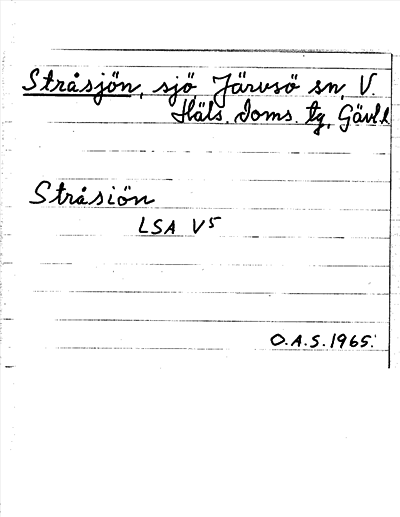 Stråsjön, sjö Järvsö sn, V.
Häls. Doms. tg, Gävl.l
Stråsiön
LSA V5
O.A.S. 1965.